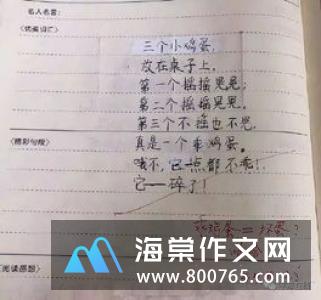 名人名言:
《优美词汇》
三个小鸡蛋,
放在桌子上,
第一个摇摇晃晃;
第二个摇摇晃晃,
第三个不摇也不晃.
《精彩句段》
真是一个乖鸡蛋。
哦不, 它一点都不乖!
它一碎了!
海棠作文网
www.800765.com
《阅读感想》